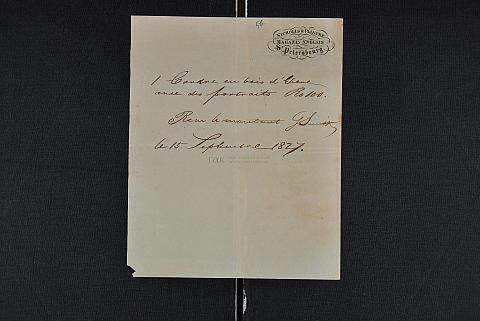 56
NICHOLLS & PLINCKE
MAGASIN ANGLAIS
St. Petersbourg
1 Cadre en bois d'Ebene
avec des portraits Ro 100.
Recu le montant GSmith
le 15 Septembre 1827.